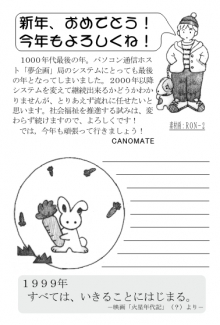 新年、おめでとう！
今年もよろしくね！
1000年代最後の年。パソコン通信ホス
ト「夢企画」局のシステムにとっても最後
の年となってしまいました。2000年以降
システムを変えて継続出来るかどうかわか
りませんが、とりあえず流れに任せたいと
思います。社会福祉を推進する試みは、変
わらず続けますので、よろしくです！
では、今年も頑張って行きましょう！
CANOMATE
素材画：RON-2
1999年
すべては、いきることにはじまる。
－映画「火星年代記」（？）より－